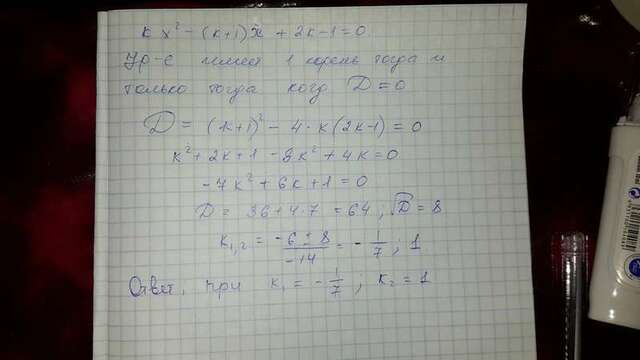 k x² - (k+1)x + 2k-1=0
Ур-е имеет 1 корень тогда и
только тогда когд D=0
D = (k+1)² - 4·k(2k-1) = 0
k² + 2k + 1 - 8k² + 4k = 0
-7k² + 6k + 1 = 0
D = 36 + 4·7 = 64; √D = 8
k₁,₂ = (-6 ± 8)/(-14) = - 1/7; 1
Ответ. при k₁ = - 1/7; k₂ = 1